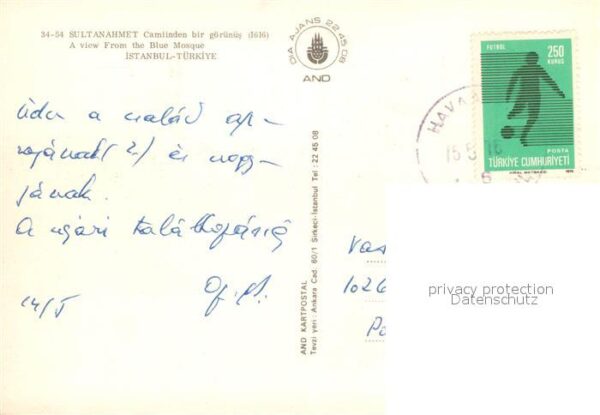 34-54 SULTANAHMET Camiinden bir görünüş (1616)
A view From the Blue Mosque
İSTANBUL-TÜRKİYE
DIA AJANS 22 45 08
AND
FUTBOL
250
KURUS
POSTA
TÜRKİYE CUMHURİYETİ
HAVA
15 5
Üdv a család ap-
rajának (2) és nagy-
jának.
A nyári találkozásig
14/5
AND KARTPOSTAL
Tevzi yeri: Ankara Cad. 60/1 Sirkeci-İstanbul Tel: 22 45 08
1026
privacy protection
Datenschutz